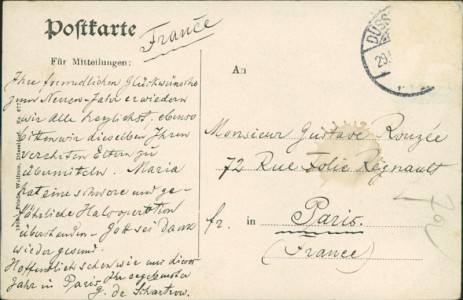 Postkarte
France
Für Mitteilungen:
An
DÜSS
Ihre freundlichen Glückwünsche
zum Neuen-Jahr erwiedern
wir alle herzlichst. ebenso
bitten wir dieselben Ihren
verehrten Eltern zu
übermitteln. Maria
hat eine schwere und ge-
fährliche Halsoperation
überstanden - Gott sei Dank
wieder gesund.
Hoffentlich sehen wir uns dieses
Jahr in Paris. Ihr ergebenster
G. de
Monsieur Gustave Rouzée
72 Rue Folie Régnault
fr. in Paris.
(France)